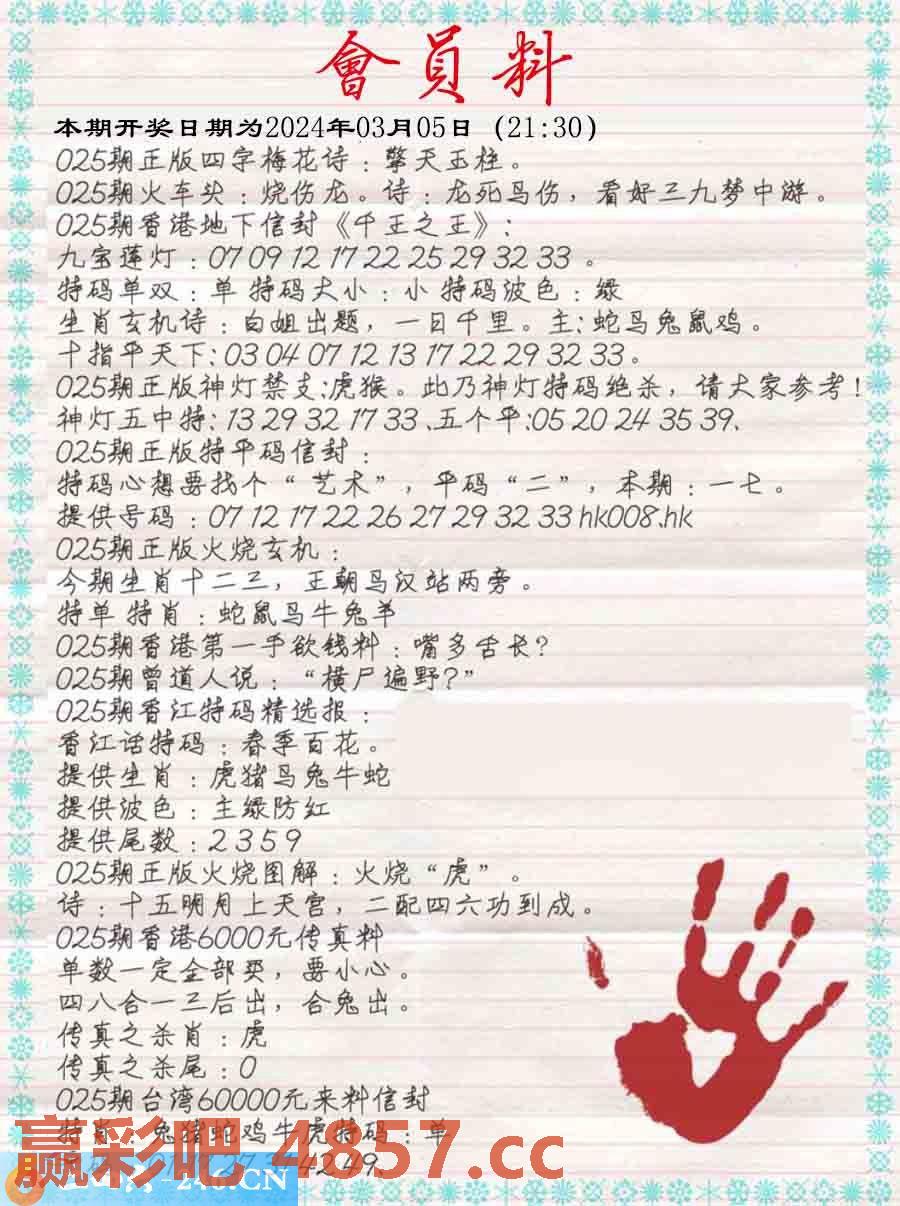 會員料
本期开奖日期为2024年03月05日（21:30）
025期正版四字梅花诗：擎天玉柱。
025期火车头：烧伤龙。诗：龙死鸟伤，看好三九梦中游。
025期香港地下信封《千王之王》:
九宝莲灯：07 09 12 17 22 25 29 32 33 。
特码单双：单 特码大小：小 特码波色：绿
生肖玄机诗：白姐出题，一日千里。主:蛇马兔鼠鸡。
十指平天下:03 04 07 12 13 17 22 29 32 33。
025期正版神灯禁支:虎猴。此乃神灯特码绝杀，请大家参考！
神灯五中特: 13 29 32 17 33 、五个平:05 20 24 35 39、
025期正版特平码信封：
特码心想要找个“艺术”，平码“二”，本期：一七。
提供号码：07 12 17 22 26 27 29 32 33 hk008.hk
025期正版火烧玄机：
今期生肖十二三，王朝马汉站两旁。
特单 特肖：蛇鼠马牛兔羊
025期香港第一手欲钱料：嘴多舌长？
025期曾道人说：“横尸遍野?”
025期香江特码精选报：
香江话特码：春季百花。
提供生肖：虎猪马兔牛蛇
提供波色：主绿防红
提供尾数：2 3 5 9
025期正版火烧图解：火烧“虎”。
诗：十五明月上天宫，二配四六功到成。
025期香港6000元传真料
单数一定全部买，要小心。
四八合一三后出，合兔出。
传真之杀肖：虎
传真之杀尾：0
025期台湾60000元来料信封
特肖：兔猪蛇鸡牛虎特码：单
赢彩吧-4857.cc
42 49、
246.CN